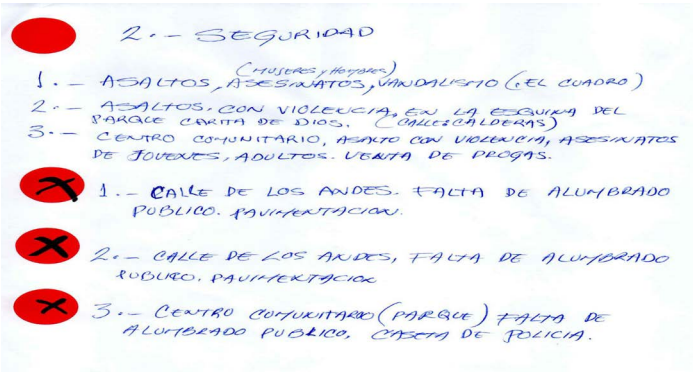 2.- SEGURIDAD
(MUJERES y HOMBRES)
1.- ASALTOS, ASESINATOS, VANDALISMO (.EL CUADRO)
2.- ASALTOS. CON VIOLENCIA. EN LA ESQUINA DEL
PARQUE CARITA DE DIOS. (CALLE: CALDERAS)
3.- CENTRO COMUNITARIO, ASALTO CON VIOLENCIA, ASESINATOS
DE JOVENES, ADULTOS. VENTA DE DROGAS.
1.- CALLE DE LOS ANDES. FALTA DE ALUMBRADO
PUBLICO. PAVIMENTACION.
2.- CALLE DE LOS ANDES, FALTA DE ALUMBRADO
PUBLICO. PAVIMENTACION
3.- CENTRO COMUNITARIO (PARQUE) FALTA DE
ALUMBRADO PUBLICO, CASETA DE POLICIA.